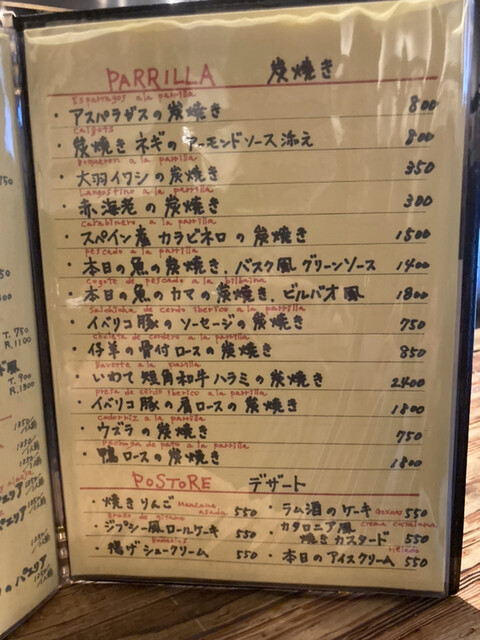 PARRILLA 炭焼き
Esparragos a la parrilla
・アスパラガスの炭焼き 800
calçots
・炭焼き ネギの アーモンドソース添え 800
Boqueron a la parrilla
・大羽イワシの炭焼き 350
Langostino a la parrilla
・赤海老の炭焼き 300
carabinero a la parrilla
・スペイン産 カラビネロ の 炭焼き 1500
pescado a la parrilla
・本日の魚の炭焼き、バスク風グリーンソース 1400
cogote de pescado a la bilbaina
・本日の魚のカマの炭焼き、ビルバオ風 1800
salchicha de cerdo iberico a la parrilla
・イベリコ豚のソーセージの炭焼き 750
chuleta de cordero a la parrilla
・仔羊の骨付ロースの炭焼き 850
a la parrilla
・いわて短角和牛ハラミの炭焼き 2400
presa de cerdo iberico a la parrilla
・イベリコ豚の肩ロースの炭焼き 1800
codorniz a la parrilla
・ウズラの炭焼き 750
pechuga de pato a la parrilla
・鴨ロースの炭焼き 1800
POSTORE デザート
・焼きりんご manzana asada 550
・ラム酒のケーキ 550
brazo de gitano
・ジプシー風ロールケーキ 550
・カタロニア風 crema catalana
焼きカスタード 550
・揚げシュークリーム 550
helado
・本日のアイスクリーム 550
T. 750
R. 1100
T. 900
R. 1300